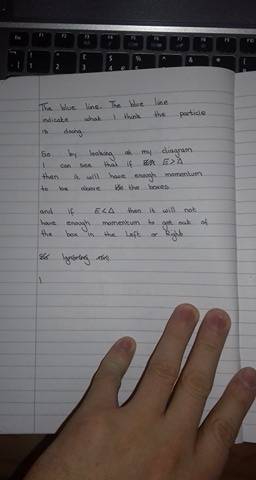 The blue line. The blue line
indicate what I think the particle
is doing.
So by looking at my diagram
I can see that if E>Δ
then it will have enough momentum
to be above the boxes
and if E<Δ then it will not
have enough momentum to get out of
the box in the Left or Right
Ignoring